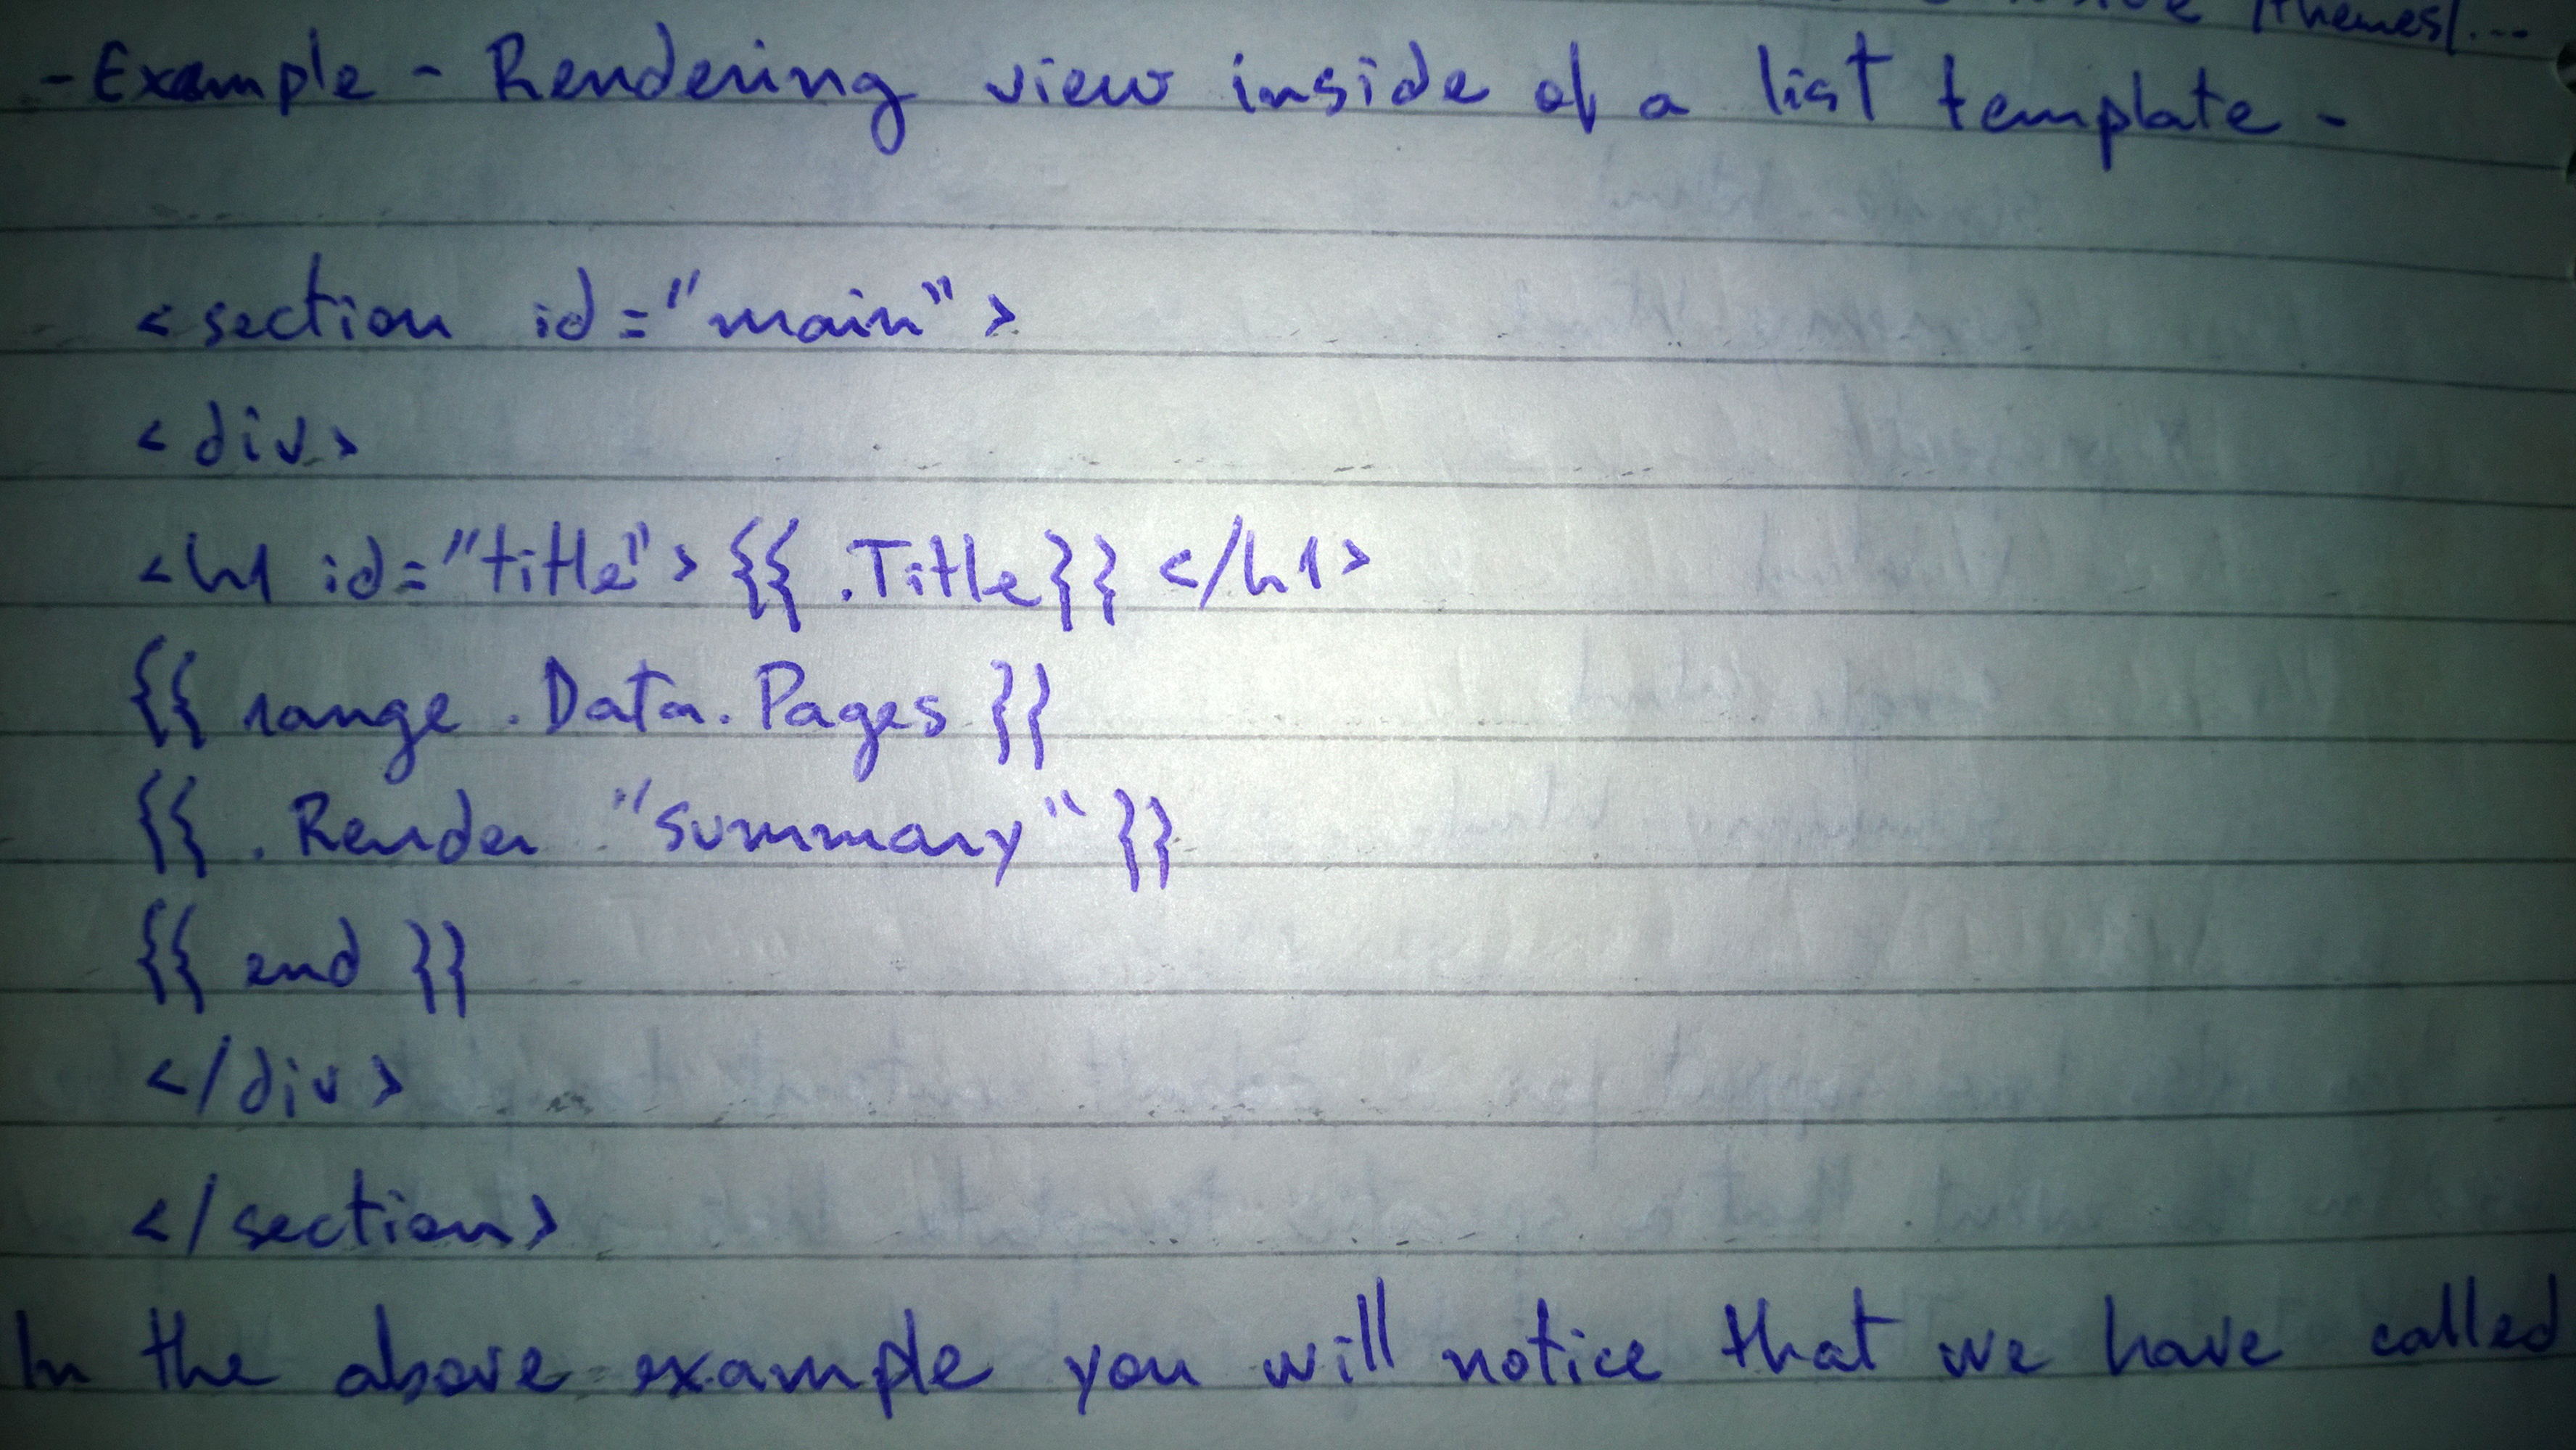 themes/...
- Example - Rendering view inside of a list template -
<section id="main">
<div>
<h1 id="title">{{ .Title}}</h1>
{{ range .Data.Pages }}
{{ .Render "summary" }}
{{ end }}
</div>
</section>
In the above example you will notice that we have called